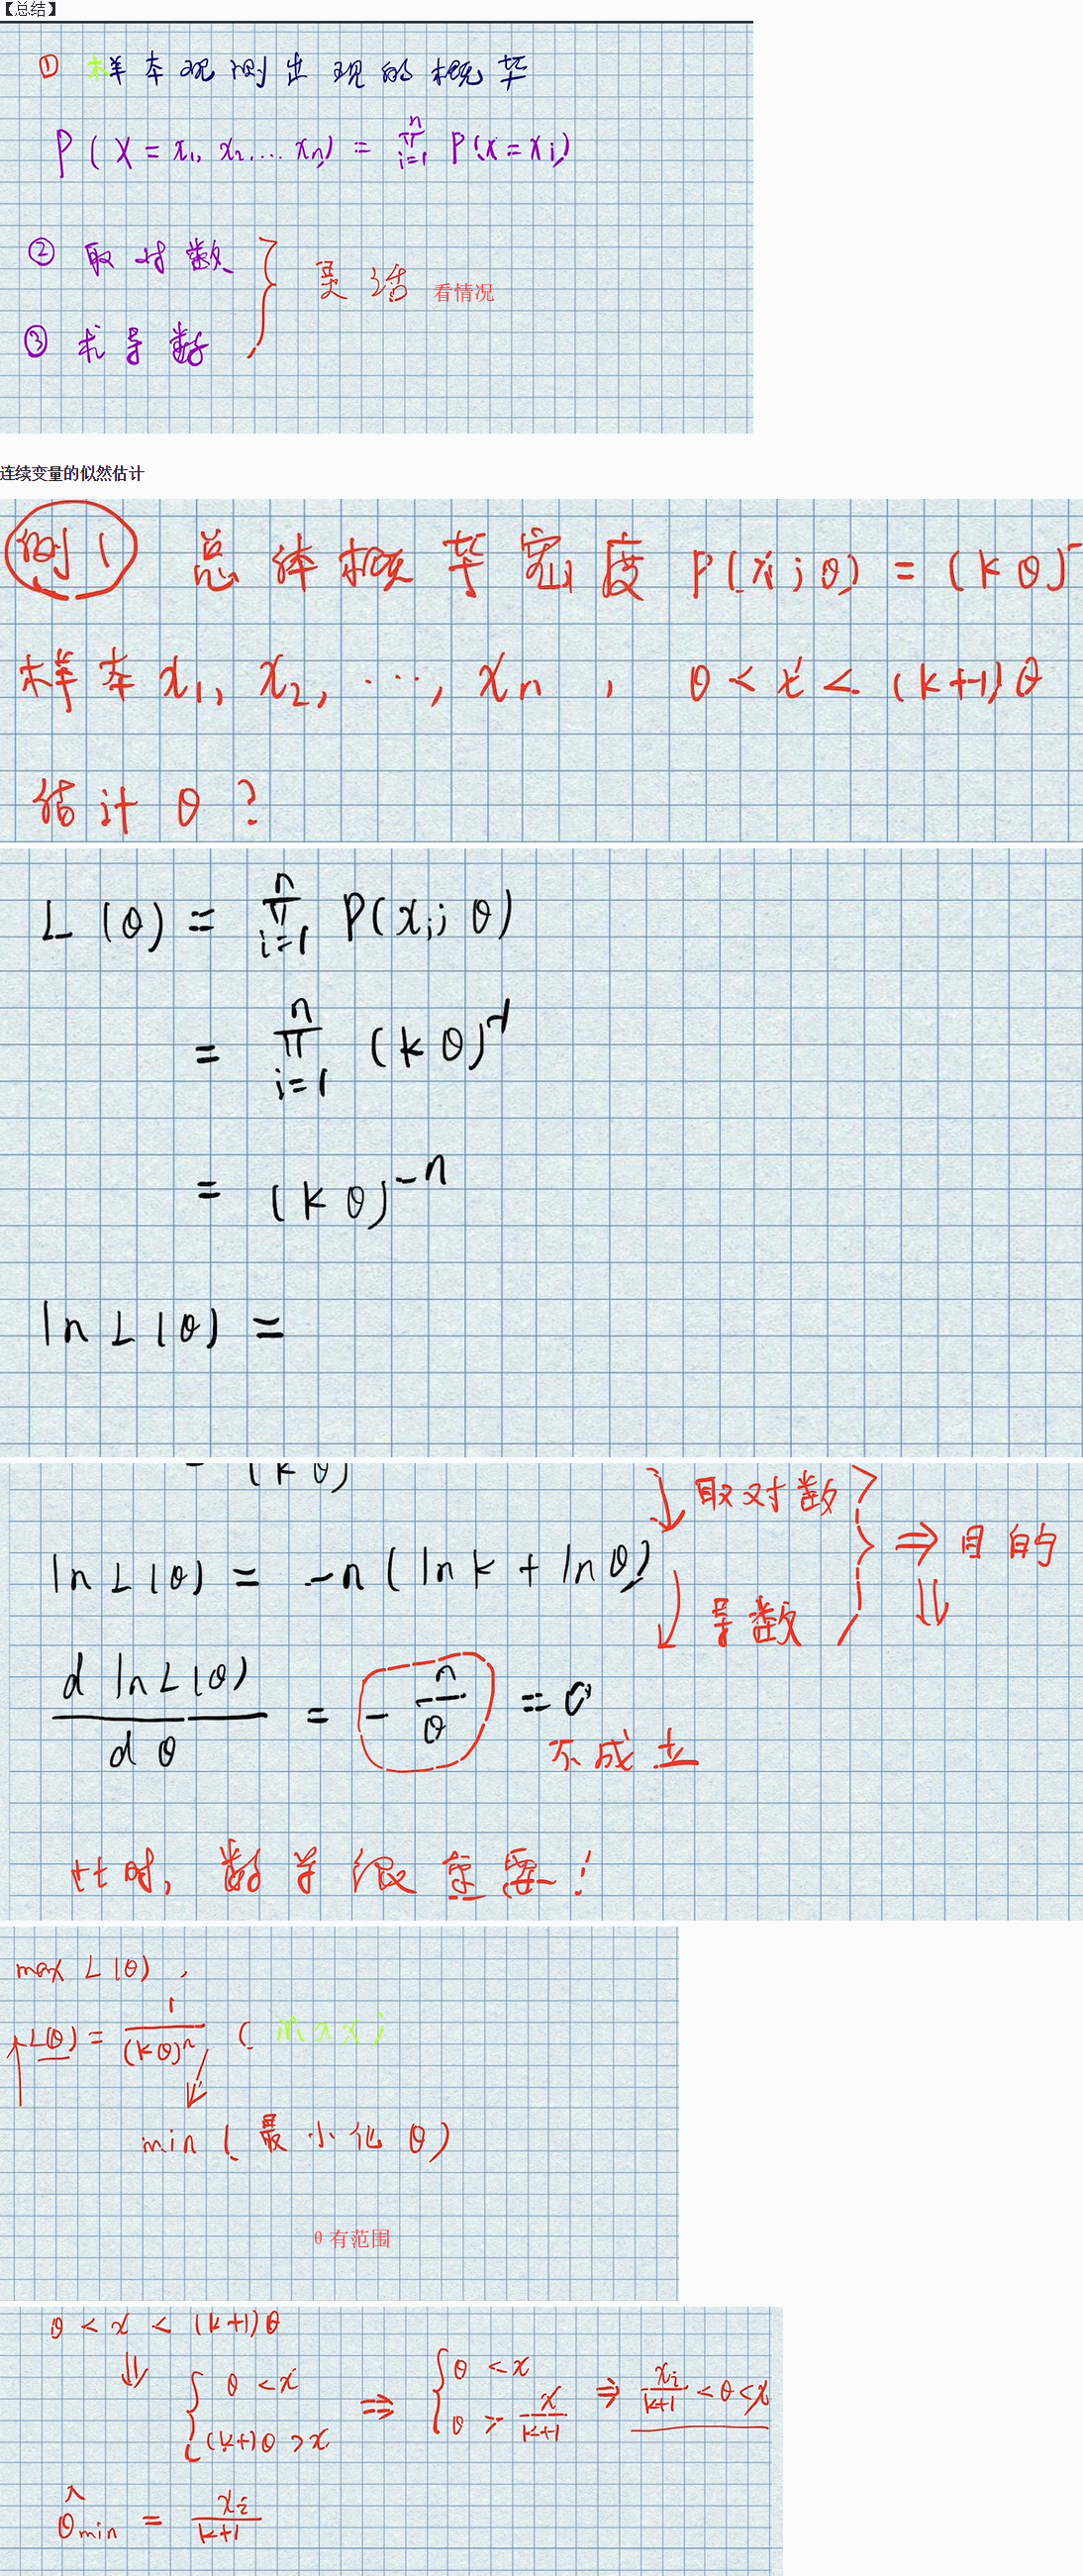 【总结】
① 样本观测出现的概率
P(X=x₁,x₂,...xₙ)=∏ᵢ₌₁ⁿ P(x=xᵢ)
② 取对数
灵活 看情况
③ 求导数
连续变量的似然估计
例1 总体概率密度 P(x;θ)=(kθ)⁻
样本x₁,x₂,…,xₙ, θ<x<(k+1)θ
估计θ?
L(θ)=∏ᵢ₌₁ⁿ P(xᵢ;θ)
=∏ᵢ₌₁ⁿ (kθ)⁻¹
=(kθ)⁻ⁿ
ln L(θ)=
=(kθ)
取对数
⇒目的
ln L(θ)=-n(ln k+ln θ)
⇓
导数
d ln L(θ)/dθ=-n/θ=0
不成立
此时,数学很重要!
max L(θ),
↑L(θ)=1/(kθ)ⁿ (max)
min(最小化θ)
θ有范围
θ<x<(k+1)θ
⇓ {θ<x, (k+1)θ>x ⇒ {θ<x, θ>x/(k+1) ⇒ xᵢ/(k+1)<θ<x
θ̂min=xᵢ/(k+1)